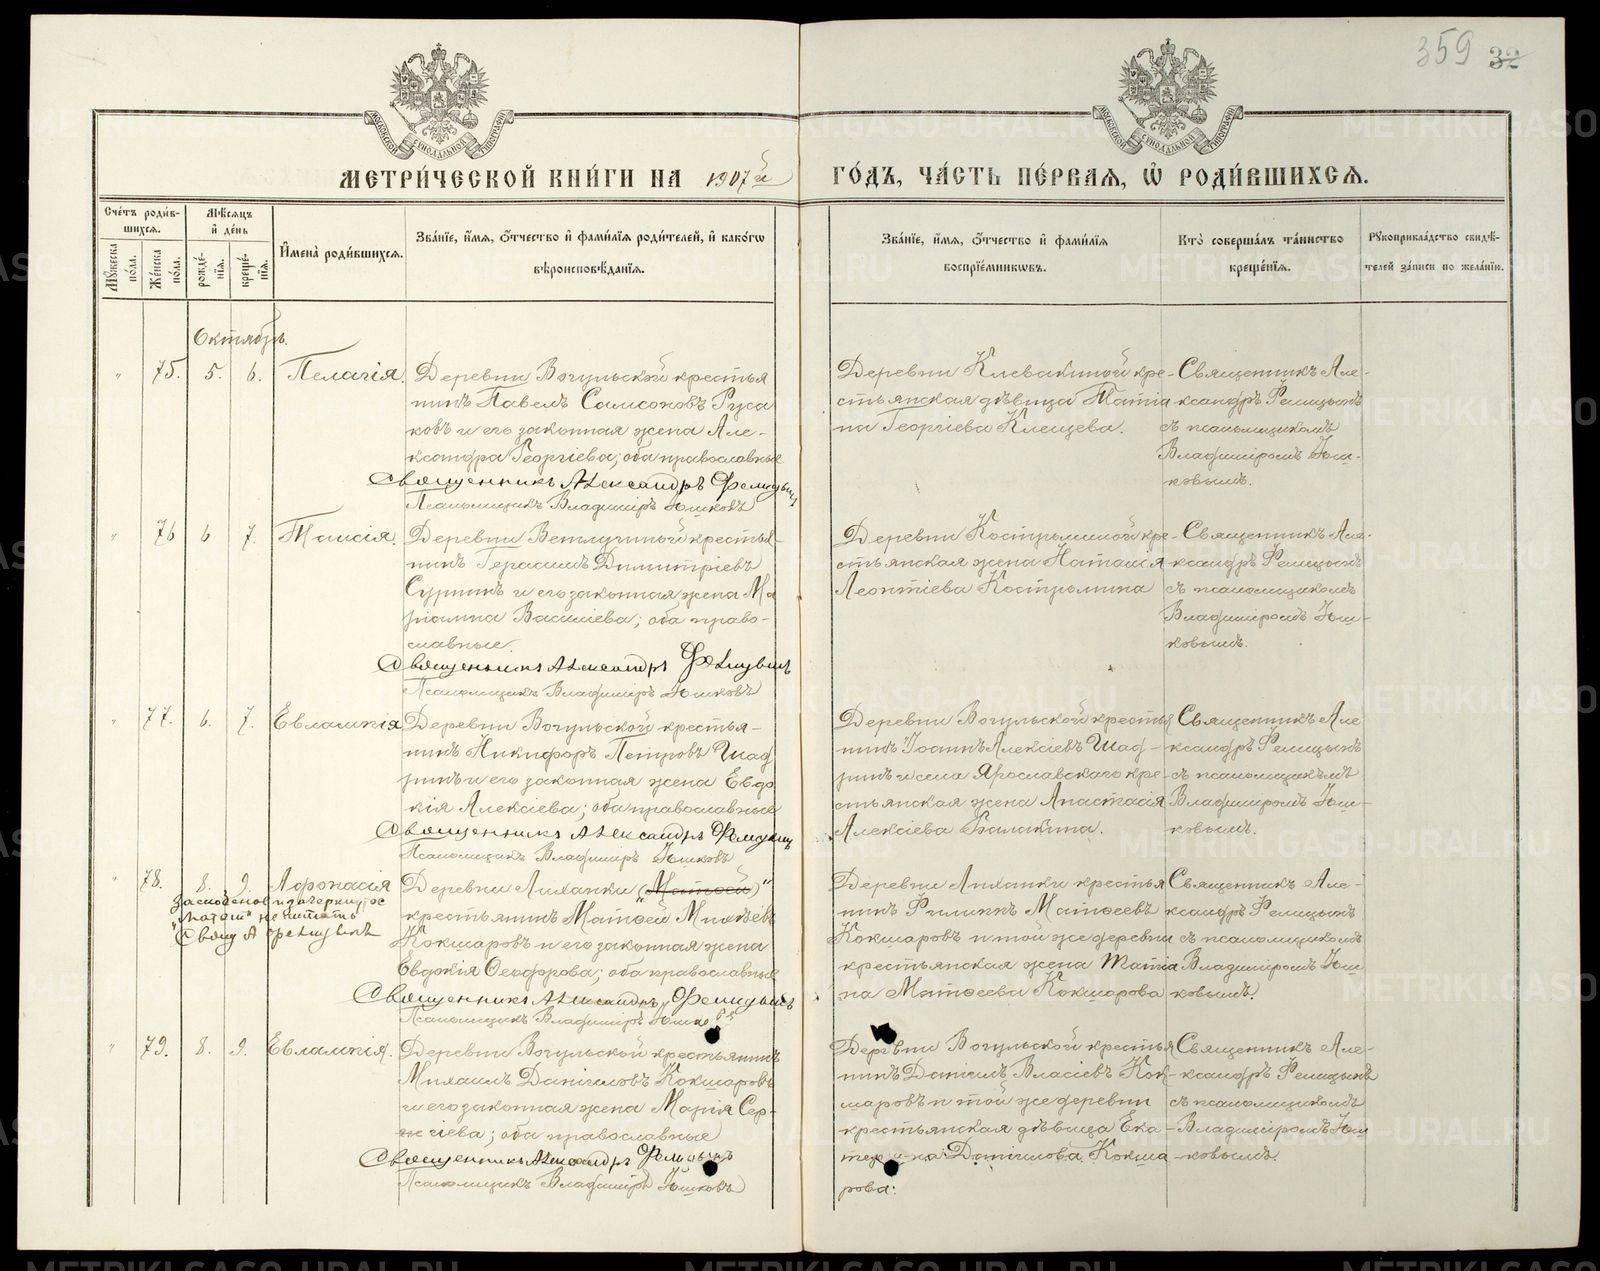 359 32
МОСКОВСКОЙ СѶНОДАЛЬНОЙ ТИПОГРАФІИ
МОСКОВСКОЙ СѶНОДАЛЬНОЙ ТИПОГРАФІИ
МЕТРИ́ЧЕСКОЙ КНИ́ГИ НА 1907й ГО́ДЪ, ЧА́СТЬ ПЕ́РВАѦ, Ѡ҆ РОДИ́ВШИХСѦ.
Сче́тъ роди́в-
шихсѧ.
Мѣ́сѧцъ
и҆ де́нь
Му́жеска
по́ла.
Же́нска
по́ла.
рожде́-
нїѧ.
креще́-
нїѧ.
И҆мена̀ роди́вшихсѧ.
Зва́нїе, и҆́мѧ, ѻ҆́тчество и҆ фами́лїѧ роди́телей, и҆ како́гѡ
вѣроисповѣ́данїѧ.
Зва́нїе, и҆́мѧ, ѻ҆́тчество и҆ фами́лїѧ
воспрїе́мникѡвъ.
Кто̀ соверша́лъ та́инство
креще́нїѧ.
Рꙋкоприкла́дство свидѣ́-
телей за́писи по жела́нїю.
Октябрь.
" 75. 5. 6. Пелагія.
Деревни Вогульской крестья
нинъ Павелъ Самсоновъ Руса
ковъ и его законная жена Але-
ксандра Георгіева; оба православные
Священникъ Александръ Фелицынъ
Псаломщикъ Владиміръ Юшковъ
Деревни Клевакиной кре-
стьянская дѣвица Татіа
на Георгіева Клещева.
Священникъ Але-
ксандръ Фелицынъ
съ псаломщикомъ
Владиміромъ Юш-
ковымъ.
" 76 6 7. Таисія.
Деревни Ветлугиной крестья-
нинъ Герасимъ Димитріевъ
Суринъ и его законная жена Ма
ріамна Василіева; оба право-
славные.
Священникъ Александръ Фелицынъ
Псаломщикъ Владиміръ Юшковъ
Деревни Костроминой кре-
стьянская жена Наталія
Леонтіева Костромина
Священникъ Але-
ксандръ Фелицынъ
съ псаломщикомъ
Владиміромъ Юш-
ковымъ.
" 77. 6. 7. Евлампія
Деревни Вогульской крестья-
нинъ Никифоръ Петровъ Шад
ринъ и его законная жена Евдо
кія Алексіева; оба православные
Священникъ Александръ Фелицынъ
Псаломщикъ Владиміръ Юшковъ
Деревни Вогульской крестья
нинъ Іоаннъ Алексіевъ Шад-
ринъ и села Ярославскаго кре-
стьянская жена Анастасія
Алексіева Балакина.
Священникъ Але
ксандръ Фелицынъ
съ псаломщикомъ
Владиміромъ Юш-
ковымъ.
" 78. 8. 9. Афонасія
"Матѳей" не читать
Свящ А Фелицынъ
Деревни Лиханки ("Матѳей")"
крестьянинъ Матѳей Михѣевъ
Кокшаровъ и его законная жена
Евдокія Ѳеодорова; оба православные
Священникъ Александръ Фелицынъ
Псаломщикъ Владиміръ Юшковъ
Деревни Лиханки крестья
нинъ Филиппъ Матѳеевъ
Кокшаровъ и той же деревни
крестьянская жена Татіа
на Матѳеева Кокшарова
Священникъ Але-
ксандръ Фелицынъ
съ псаломщикомъ
Владиміромъ Юш
ковымъ.
" 79. 8. 9. Евлампія.
Деревни Вогульской крестьянинъ
Михаилъ Даніиловъ Кокшаровъ
и его законная жена Марія Сер-
гіева; оба православные
Священникъ Александръ Фелицынъ
Псаломщикъ Владиміръ Юшковъ
Деревни Вогульской крестья
нинъ Даніилъ Власіевъ Кок-
шаровъ и той же деревни
крестьянская дѣвица Ека-
терина Даніилова Кокша
рова.
Священникъ Але-
ксандръ Фелицынъ
съ псаломщикомъ
Владиміромъ Юш
ковымъ.
METRIKI.GASO-URAL.RU